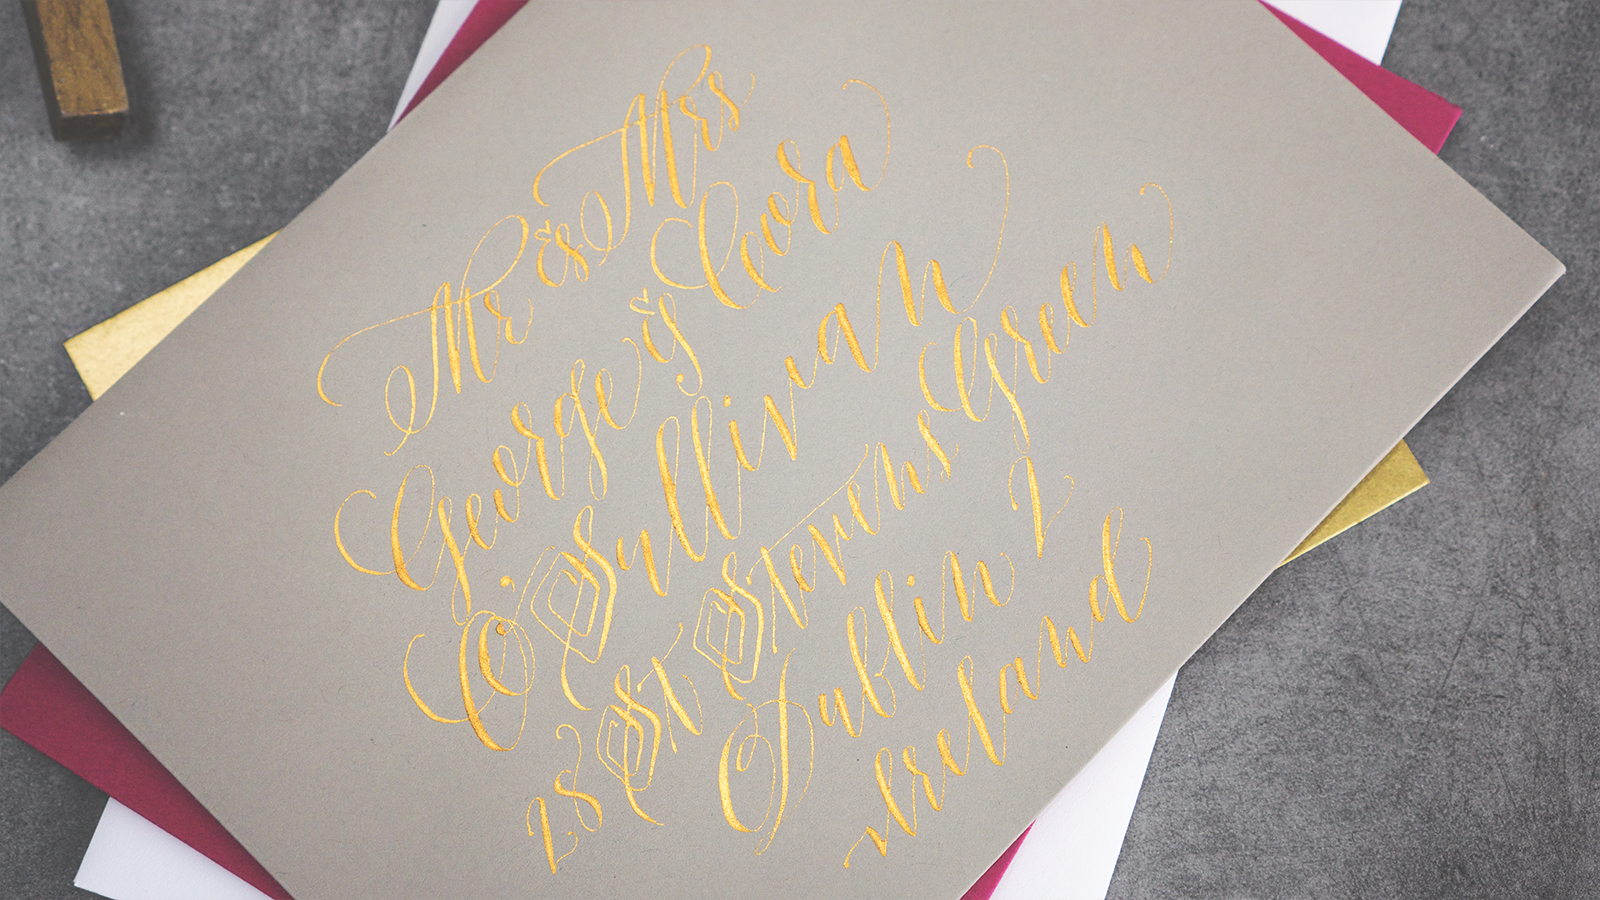 Mr & Mrs
George & Cora
O'Sullivan
28 St Stevens Green
Dublin 2
Ireland